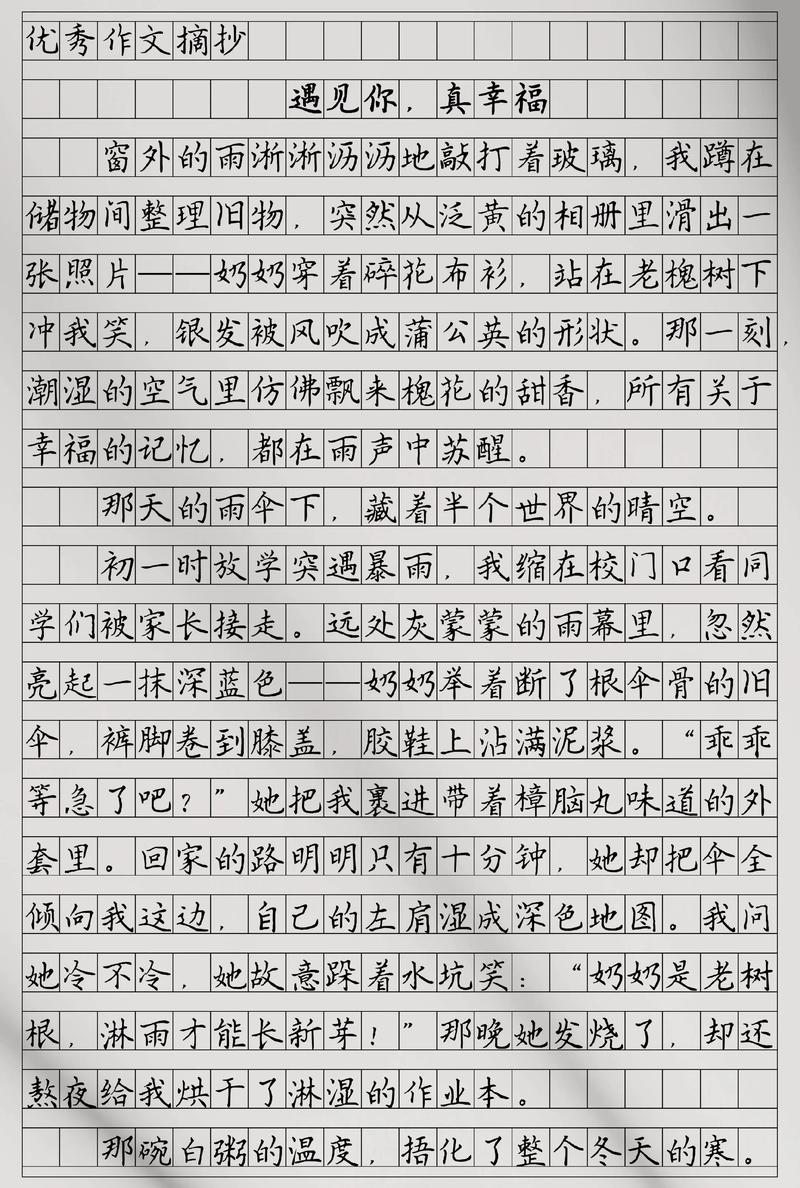 优秀作文摘抄
遇见你，真幸福
窗外的雨淅淅沥沥地敲打着玻璃，我蹲在
储物间整理旧物，突然从泛黄的相册里滑出一
张照片——奶奶穿着碎花布衫，站在老槐树下
冲我笑，银发被风吹成蒲公英的形状。那一刻，
潮湿的空气里仿佛飘来槐花的甜香，所有关于
幸福的记忆，都在雨声中苏醒。
那天的雨伞下，藏着半个世界的晴空。
初一时放学突遇暴雨，我缩在校门口看同
学们被家长接走。远处灰蒙蒙的雨幕里，忽然
亮起一抹深蓝色——奶奶举着断了根伞骨的旧
伞，裤脚卷到膝盖，胶鞋上沾满泥浆。“乖乖
等急了吧？”她把我裹进带着樟脑丸味道的外
套里。回家的路明明只有十分钟，她却把伞全
倾向我这边，自己的左肩湿成深色地图。我问
她冷不冷，她故意跺着水坑笑：“奶奶是老树
根，淋雨才能长新芽！”那晚她发烧了，却还
熬夜给我烘干了淋湿的作业本。
那碗白粥的温度，捂化了整个冬天的寒。